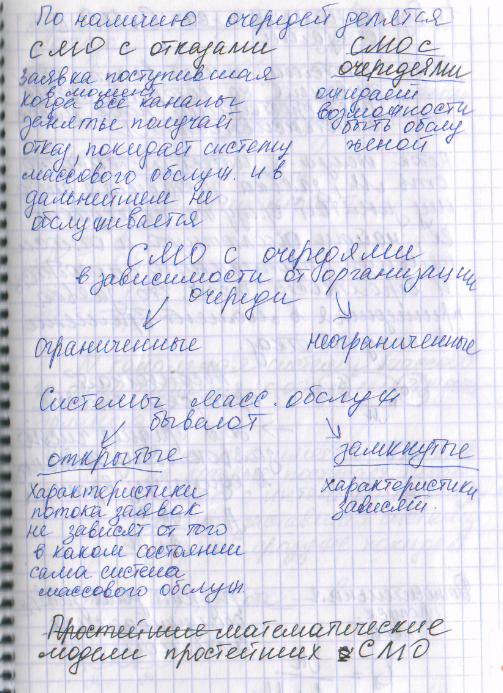 По наличию очередей делятся
СМО с отказами
заявка поступившая
в момент
когда все каналы
занятые получает
отказ, покидает систему
массового обслуж. и в
дальнейшем не
обслуживается
СМО с
очередями
ожидает
возможности
быть обслу
женой
СМО с очередями
в зависимости от организации
очереди
ограниченные
неограниченные
Системы масс. обслуж
бывают
открытые
характеристики
потока заявок
не зависят от того
в каком состоянии
сама система
массового обслуж.
замкнутые
характеристики
зависят.
Простейшие математические
модели простейших СМО